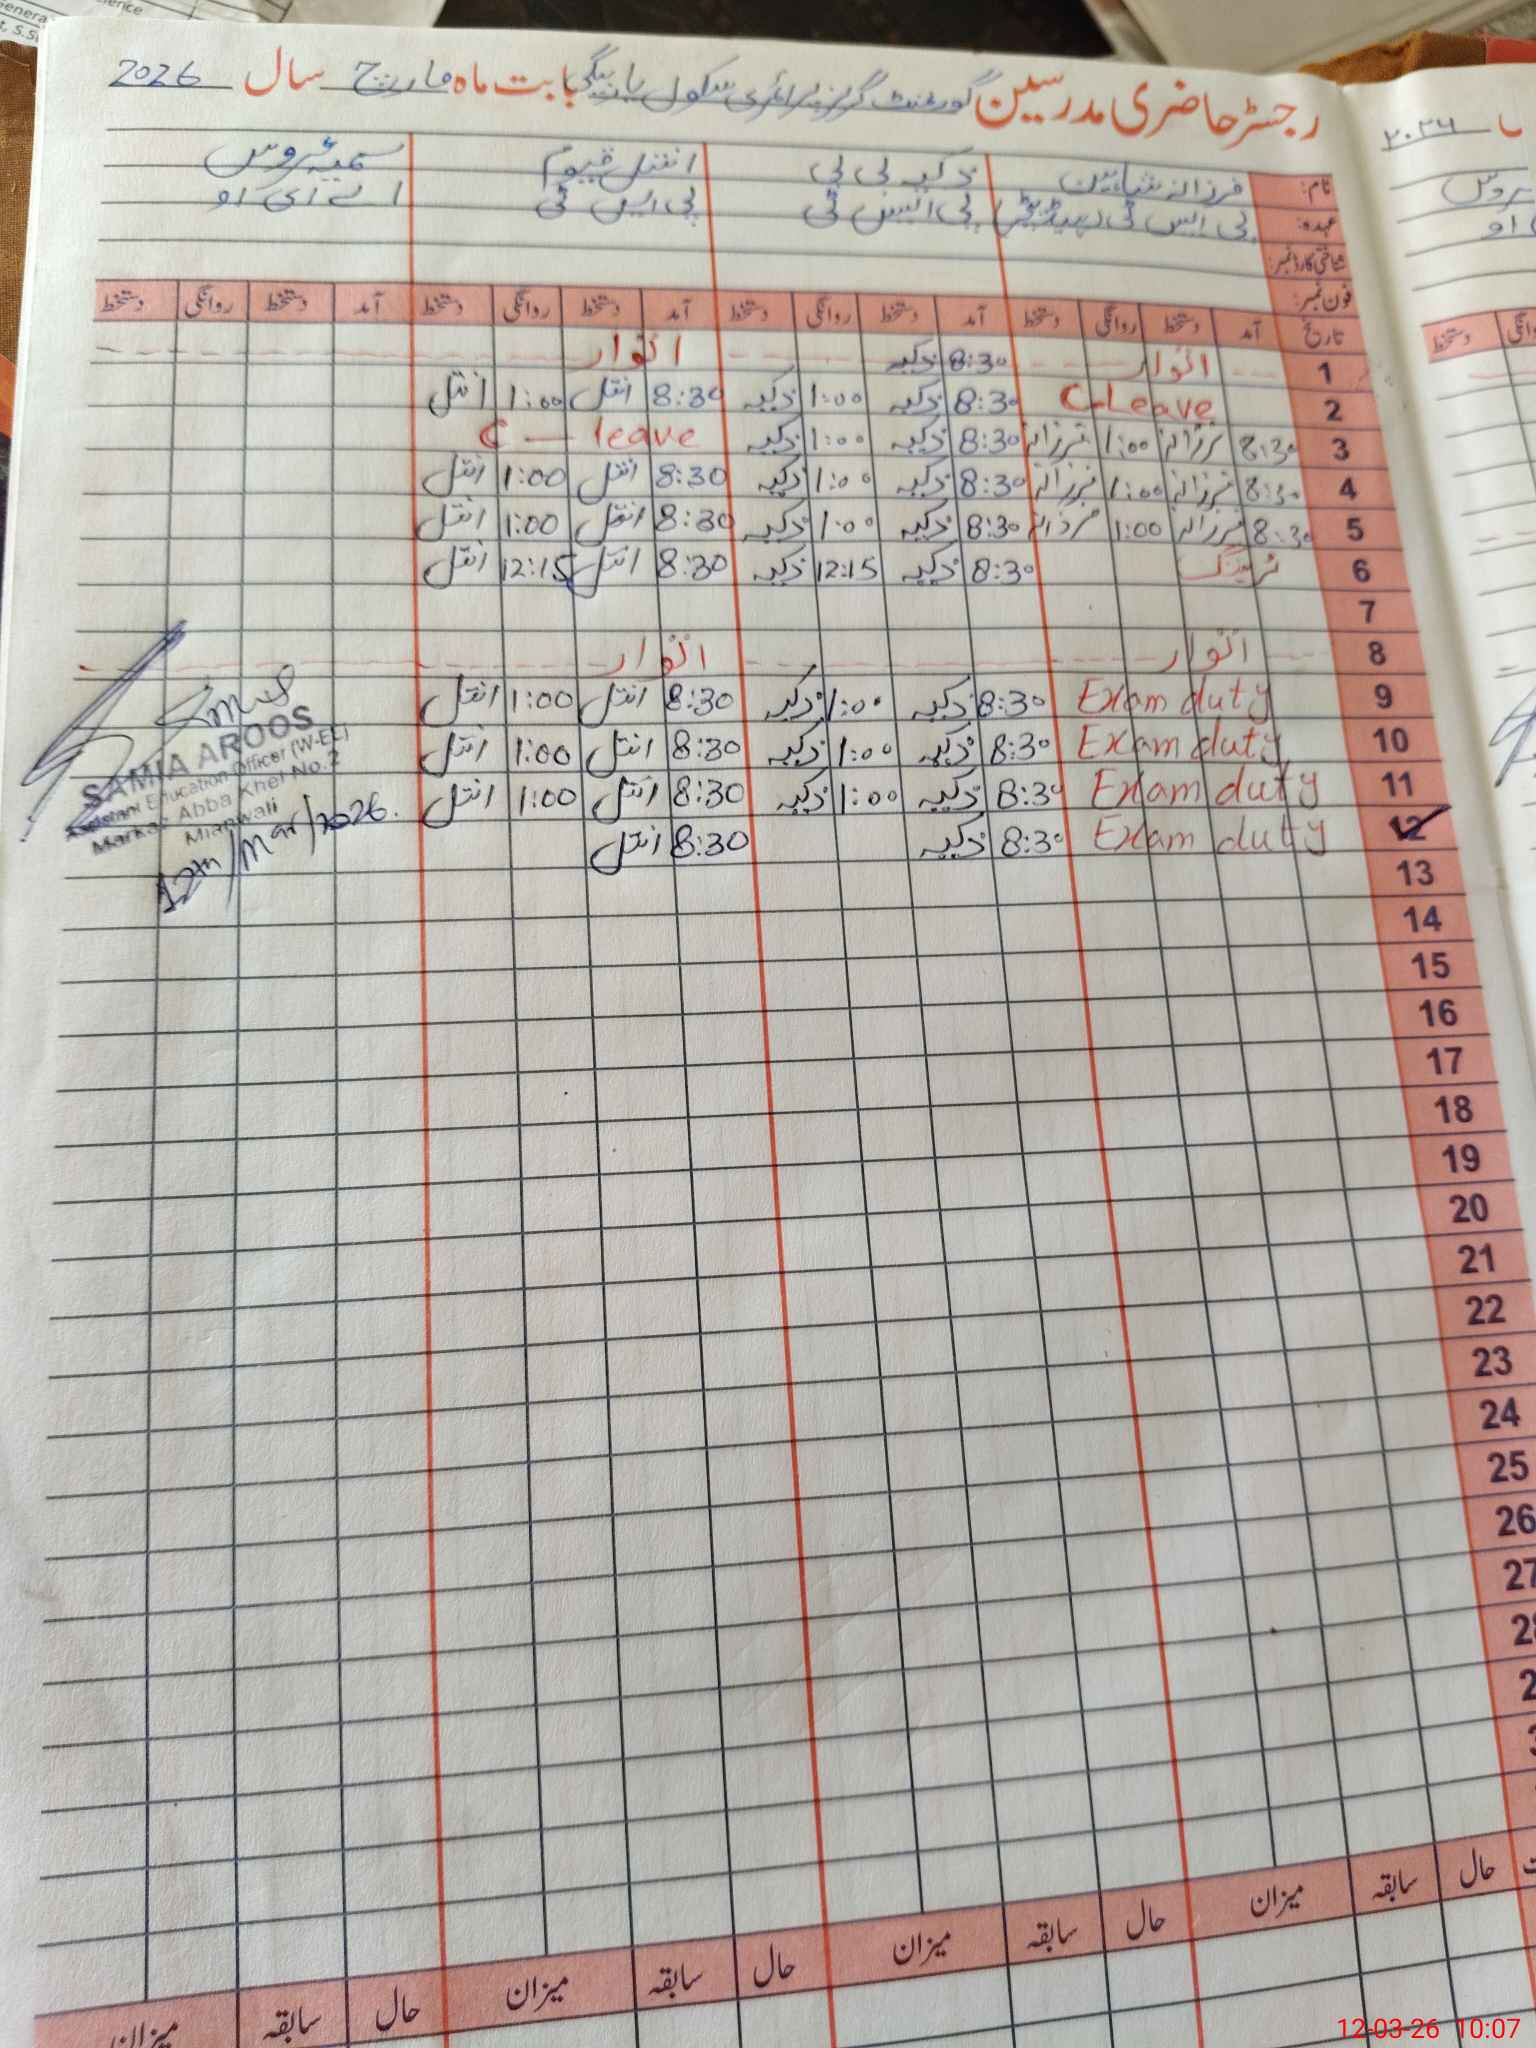 رجسٹر حاضری مدرسین گورنمنٹ گرلز پرائمری سکول بابت ماہ مارچ سال 2026
نام: فرزانہ شاہین ذکیہ بی بی انفل قیوم سمیہ عروس
عہدہ: پی ایس ٹی ہیڈ ٹیچر پی ایس ٹی پی ایس ٹی اے ای او
شناختی کارڈ نمبر:
فون نمبر:
تاریخ آمد دستخط روانگی دستخط آمد دستخط روانگی دستخط آمد دستخط روانگی دستخط آمد دستخط روانگی دستخط
1 اتوار 8:30 ذکیہ اتوار
2 C-Leave 8:30 ذکیہ 1:00 ذکیہ 8:30 انفل 1:00 انفل
3 8:30 فرزانہ 1:00 فرزانہ 8:30 ذکیہ 1:00 ذکیہ C — leave
4 8:30 فرزانہ 1:00 فرزانہ 8:30 ذکیہ 1:00 ذکیہ 8:30 انفل 1:00 انفل
5 8:30 فرزانہ 1:00 فرزانہ 8:30 ذکیہ 1:00 ذکیہ 8:30 انفل 1:00 انفل
6 ٹریننگ 8:30 ذکیہ 12:15 ذکیہ 8:30 انفل 12:15 انفل
7
8 اتوار اتوار
9 Exam duty 8:30 ذکیہ 1:00 ذکیہ 8:30 انفل 1:00 انفل
10 Exam duty 8:30 ذکیہ 1:00 ذکیہ 8:30 انفل 1:00 انفل
11 Exam duty 8:30 ذکیہ 1:00 ذکیہ 8:30 انفل 1:00 انفل
12 Exam duty 8:30 ذکیہ 8:30 انفل
SAMIA AROOS
Assistant Education Officer (W-EE)
Markaz Abba Khel No.2
Mianwali
12th/Mar/2026.
13
14
15
16
17
18
19
20
21
22
23
24
25
26
27
حال سابقہ میزان حال سابقہ میزان حال سابقہ میزان حال سابقہ میزان
۲۰۲۶
دستخط
12-03-26 10:07